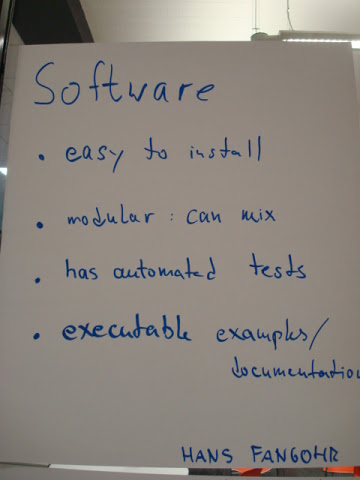 Software
• easy to install
• modular: can mix
• has automated tests
• executable examples/
documentation
HANS FANGOHR